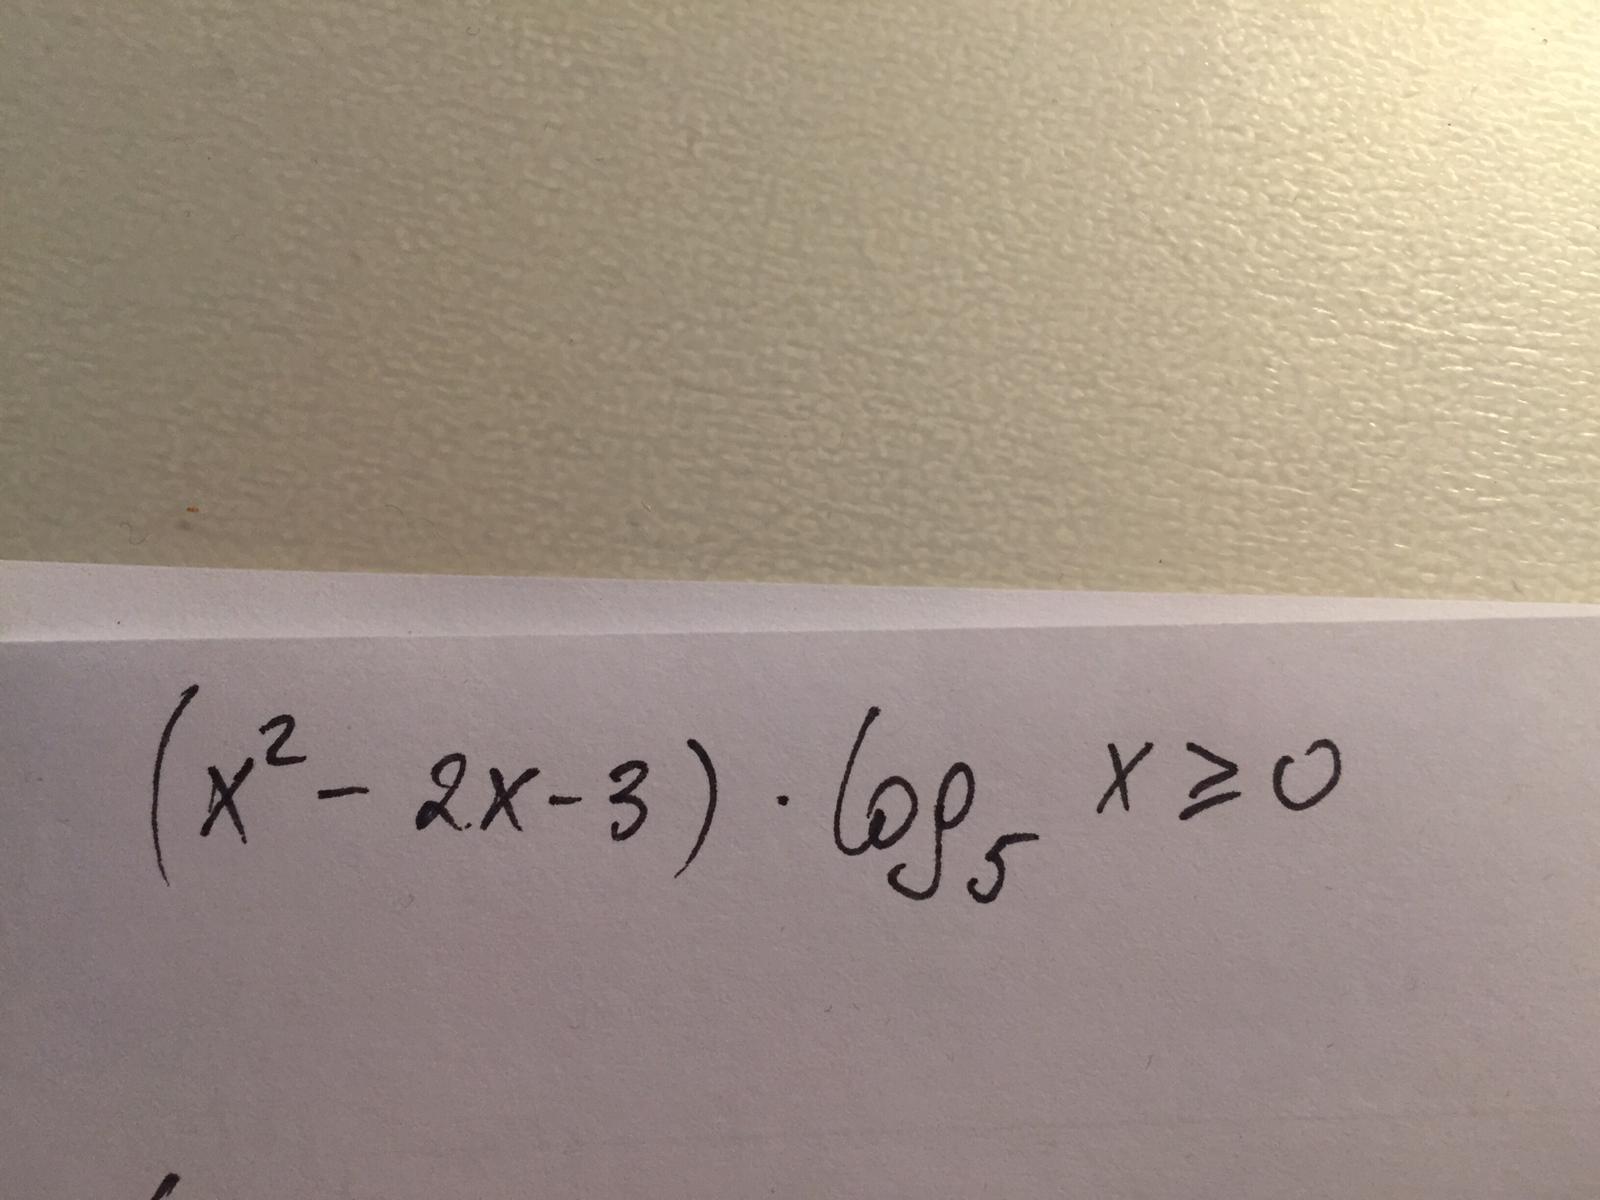 (x² - 2x - 3) · log₅ x ≥ 0